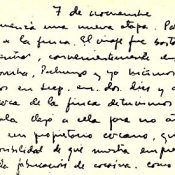 7 de noviembre
una nueva etapa. Po
a la finca. El viaje fue bast
convenientemente
Pachungo y yo hicimos
en jeep, en dos días y d
cerca de la finca detuvimos
sola llegó a ella para no at
un propietario cercano, qu
sibilidad de que nuestra empre
la fabricación de cocaína. como